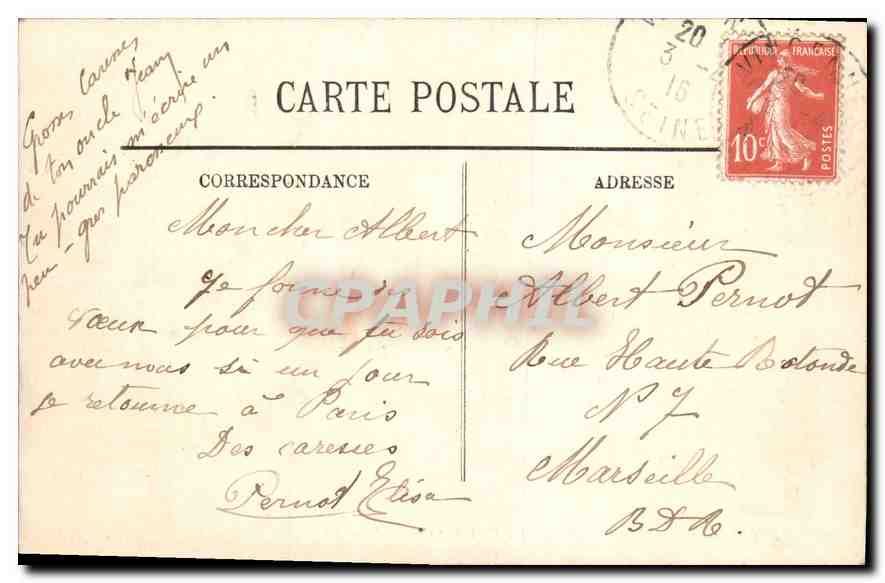 Grosses Caresses
de ton oncle Jean
Tu pourrais m'écrire un
peu - gros paresseux.
CARTE POSTALE
CORRESPONDANCE
Mon cher Albert
Je forme des
vœux pour que tu sois
avec nous si un jour
je retourne à Paris
Des caresses
Pernot Elisa
ADRESSE
Monsieur
Albert Pernot
Rue Haute Rotonde
N 7
Marseille
B D R.
REPUBLIQUE FRANÇAISE
10c
POSTES
20
3 -4
16
SEINE
CPAPHIL